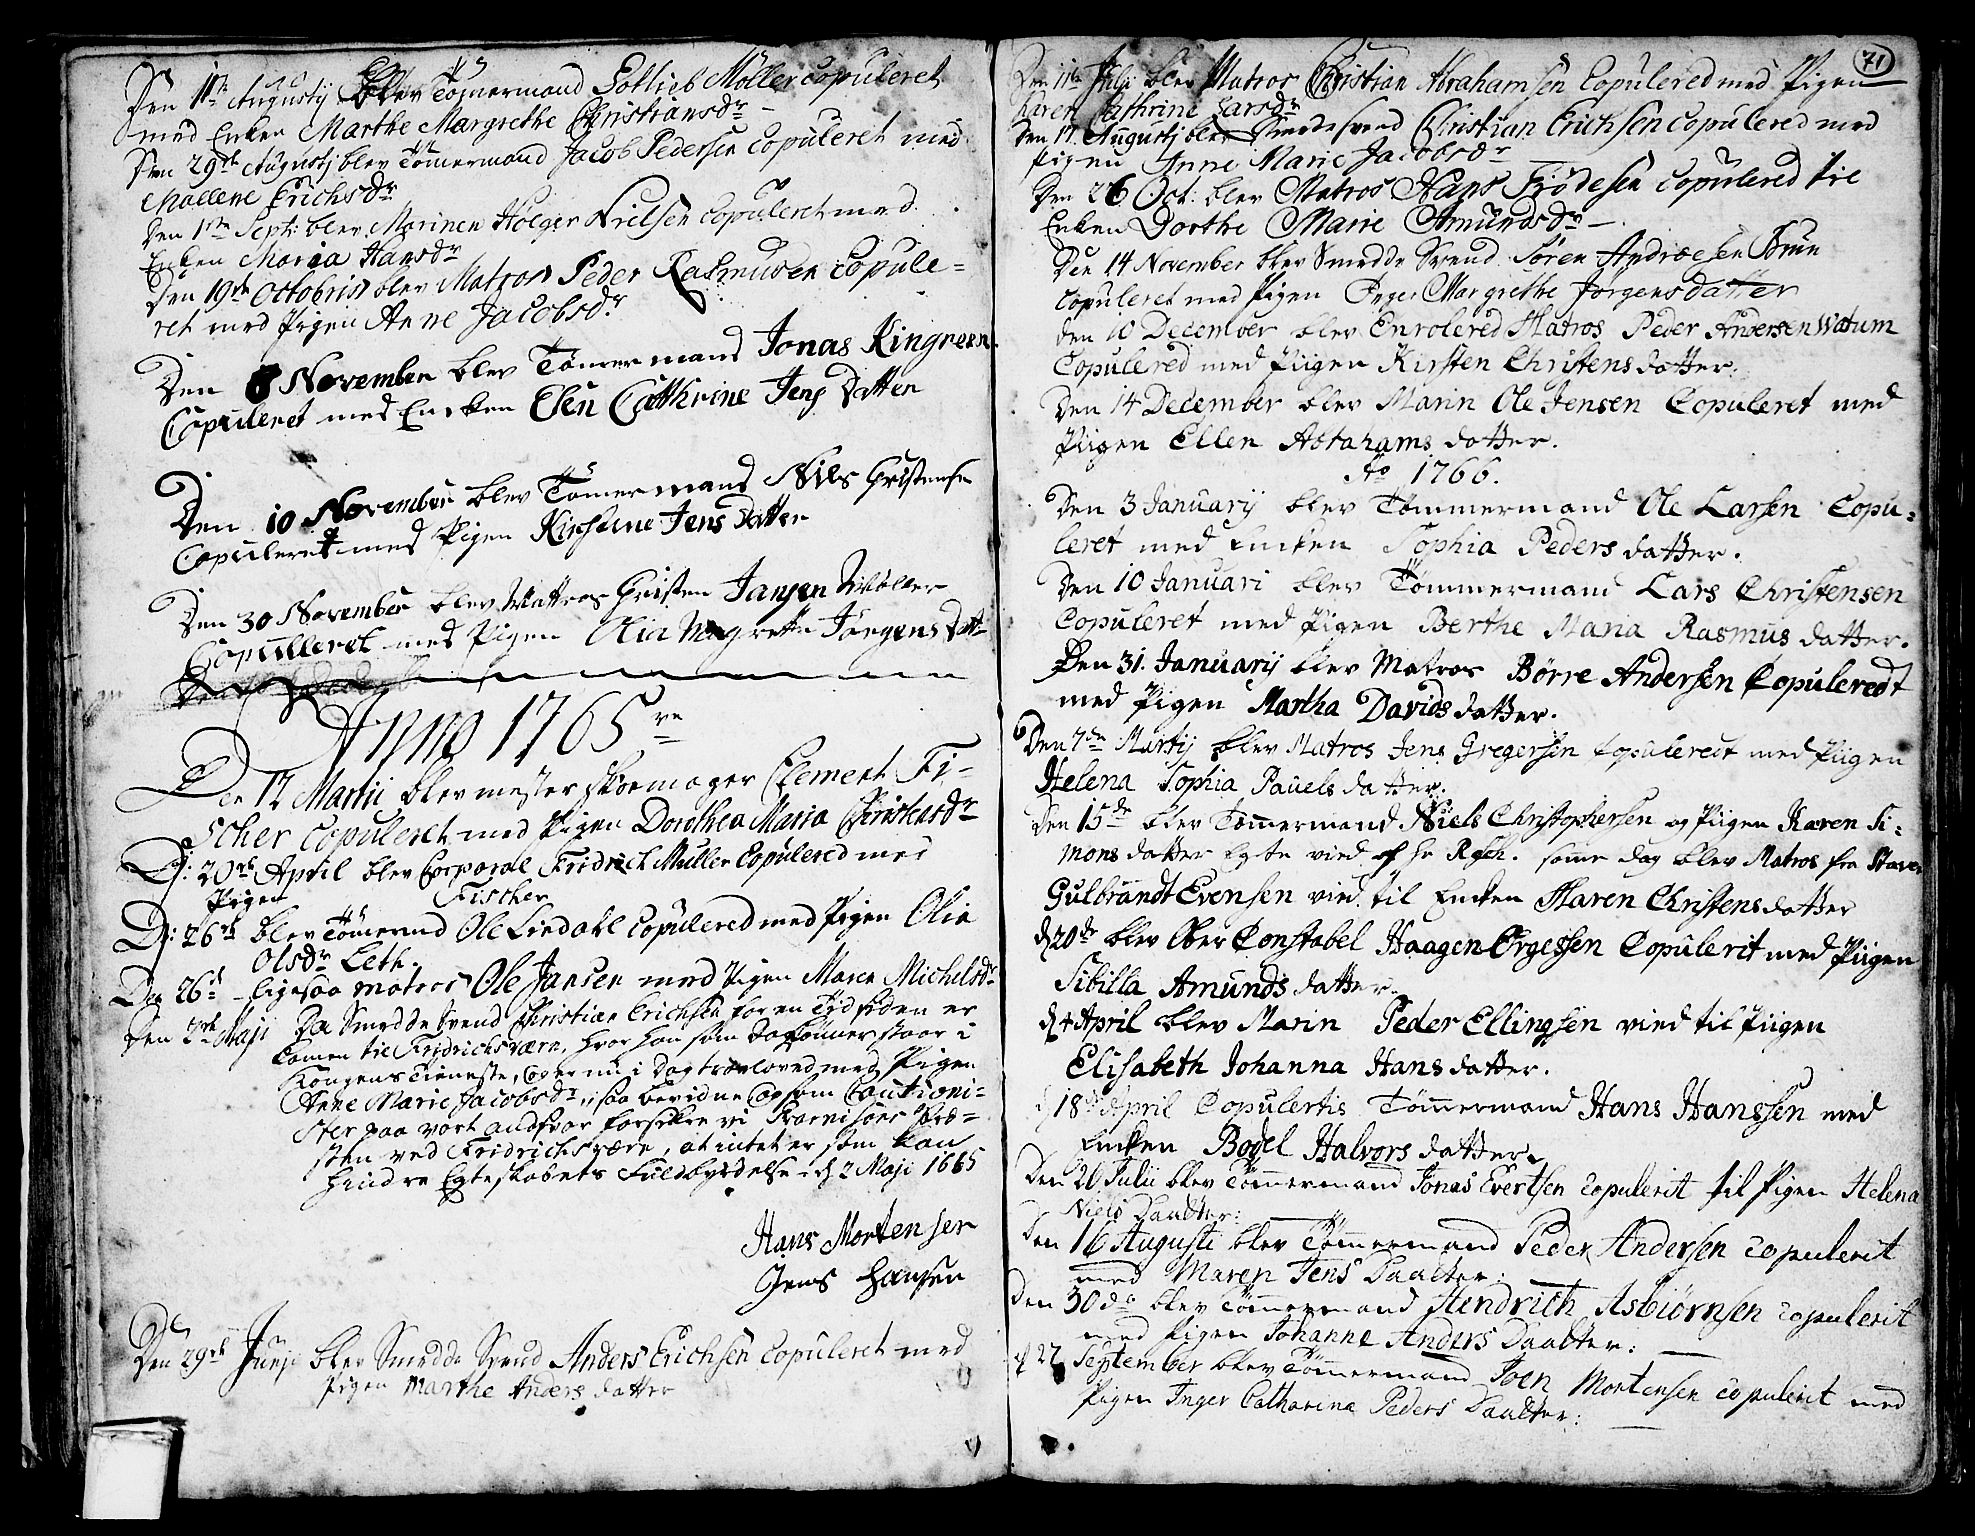 Den 11te Augustij blev Tömermand Gotlieb Möller copuleret
med Enken Marthe Margrethe Christiansdr
Den 29de Augustj blev Tömermand Jacob Pedersen copuleret med
Mallene Erichsdr
Den 1ste Sept: blev Marinen Holger Nielsen copuleret med
Enken Maria Hansdr
Den 19de Octobris blev Matros Peder Rasmusen copule=
ret med Pigen Anne Jacobsdr
Den 8 November blev Tömermand Jonas Ringreen
Copuleret med Encken Elsen Catthrine Jens Datter
Den 10 November blev Tömermand Niels Christense
Copuleret med Pigen Kirstine Jens Datter
Den 30 November blev Mattros Christen Jansen Möller
Copulleret med Pigen Olia Margrette Jörgens Datt
Anno 1765
Den 12 Martii blev mester skoemager Clement Fi=
scher copuleret med Pigen Dorothea Maria Christensdr
D: 20de April blev Corporal Fridrich Muller copulered med
Pigen Fischer
D: 26de blev Tömermd Ole Liedahl copulered med Pigen Olia
Olsdr Leth.
Den 26d ligesaa matros Ole Jansen med Pigen Maren Michelsdr
Den 2de Maji Da Smedde Svend Christian Erichsen for en Tid siden er
komen til Fridrichsværn, hvor han som Daglönner staar i
Kongens Tieneste, og er nu i Dag trovloved med Pigen
Anne Marie Jacobsdr, saa bevidne og som Cautioni=
ster paa vort andsvar forsikre vi Garnisons Præ=
sten ved Fridrichsværn, at intet er som kan
hindre Egteskabets Fuldbyrdelse. d 2 Maji 1665
Hans Mortensen
Jens Hansen
Den 29de Junji blev Smedde Svend Anders Erichsen copuleret med
Pigen Marthe Anders datter
71
Den 11te Julii blev Matros Christian Abrahamsen Copulered med Pigen
Karen Cathrine Larsdr
Den 17 Augustj blev Smedesvend Christian Ericksen copulered med
Pigen Anne Marie Jacobsdr
Den 26 Oct: blev Matros Hans Frödesen copulered til
Enken Dorthe Marie Amundsdr
Den 14 November blev Smedde Svend Sören Andræsen Brun
copuleret med Pigen Inger Margrethe Jörgensdatter
den 10 December blev Enrolered Matros Peder Andersen Watum
Copulered med Piigen Kirsten Christensdatter.
Den 14 December blev Marin Ole Jensen Copuleret med
Piigen Ellen Abrahams datter.
Ao 1766.
Den 3 Januarij blev Tömmermand Ole Larsen Copu=
leret med Encken Sophia Peders datter.
Den 10 Januari blev Tömmermand Lars Christensen
Copuleret med Pigen Berthe Maria Rasmus datter.
Den 31. Januarij blev Matros Börre Andersen Copuleredt
med Pigen Martha Davids datter.
Den 7de Martij blev Matros Jens Gregersen Copuleret med Piigen
Helena Sophia Pauels datter.
Den 15de blev Tömmermand Niels Christophersen og Piigen Karen Si=
mons datter Egte vied af hr Rsch. samme dag blev Matros fra
Gulbrandt Evensen vied til Encken Maren Christensdatter
d 20de blev Ober Constabel Haagen Örgessen Copulerit med Piigen
Sibilla Amunds datter.
d 4 April blev Marin Peder Ellingsen vied til Piigen
Elisabeth Johanna Hans datter.
d 18de April Copulertis Tömmermand Hans Hanssen med
Encken Bodel Halvors datter.
Den 20 Julii blev Tömmermand Jonas Evertsen copulerit til Pigen Helena
Niels Daatter:
Den 16 Augusti blev Tömmermand Peder Andersen copulerit
med Maren Jens Daatter:
Den 30de blev Tömmermand Hendrich Asbiörnsen copulerit
med Pigen Johanne Anders Daatter:
d 27 September blev Tömmermand Joen Mortensen copulerit med
Pigen Inger Catharina Peders Daatter: